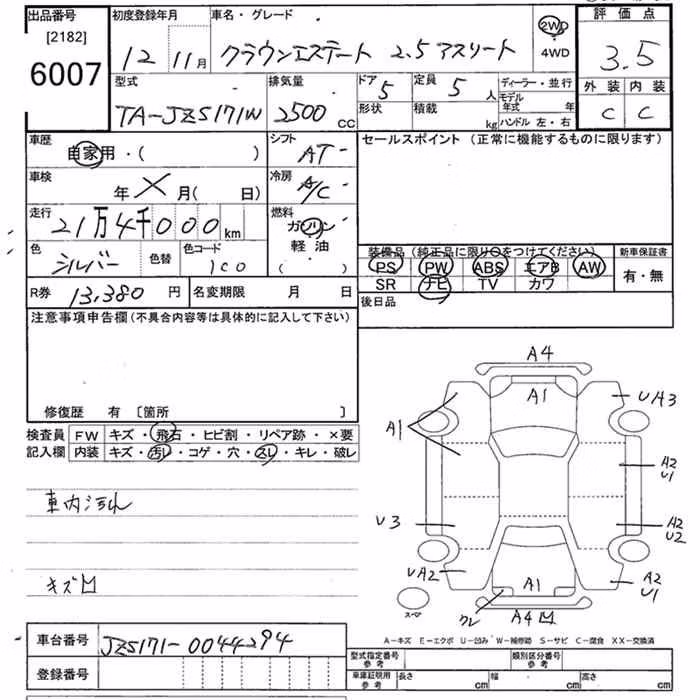 出品番号 初度登録年月 車名・グレード 2WD 4WD 評価点
[2182]
6007 12 11月 クラウンエステート 2.5 アスリート 3.5
外装 内装
C C
型式 排気量 ドア 定員 ディーラー・並行
TA-JZS171W 2500cc 5 5人 モデル年式 年
形状 積載 kg ハンドル 左・右
車歴 シフト セールスポイント (正常に機能するものに限ります)
自家用・( ) AT
車検 冷房
年 X 月( 日) A/C
走行 燃料
21万4千000km ガソリン
軽油
( )
色 色替 色コード 装備品 (純正品に限り○をつけてください) 新車保証書
シルバー 1C0 PS PW ABS エアB AW 有・無
SR ナビ TV カワ
R券 13,380円 名変期限 月 日 後日品
注意事項申告欄 (不具合内容等は具体的に記入して下さい)
修復歴 有 [箇所 ]
検査員 FW キズ・飛石・ヒビ割・リペア跡・×要
記入欄 内装 キズ・汚レ・コゲ・穴・スレ・キレ・破レ
車内汚れ
キズ凹
A4
A1
UA3
A1
A2
U1
U3
A2
U2
UA2
A1
A2
U1
クレ
A4凹
スペア
A-キズ E-エクボ U-凹み W-補修跡 S-サビ C-腐食 XX-交換済
車台番号 JZS171-0044294
登録番号
型式指定番号 参考 類別区分番号 参考
車庫証明用 参考 長さ cm 幅 cm 高さ cm